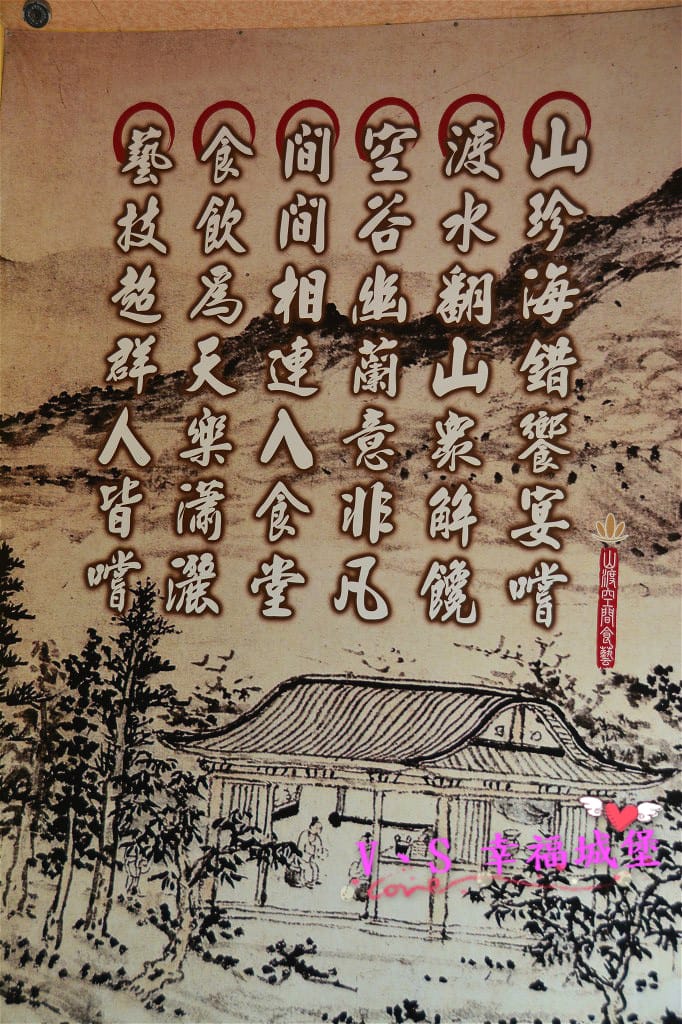 山珍海錯饗宴嚐
渡水翻山眾解饞
空谷幽蘭意非凡
間間相連入食堂
食飲為天樂瀟灑
藝技超群人皆嚐
山渡空間食藝
V、S 幸福城堡
Love